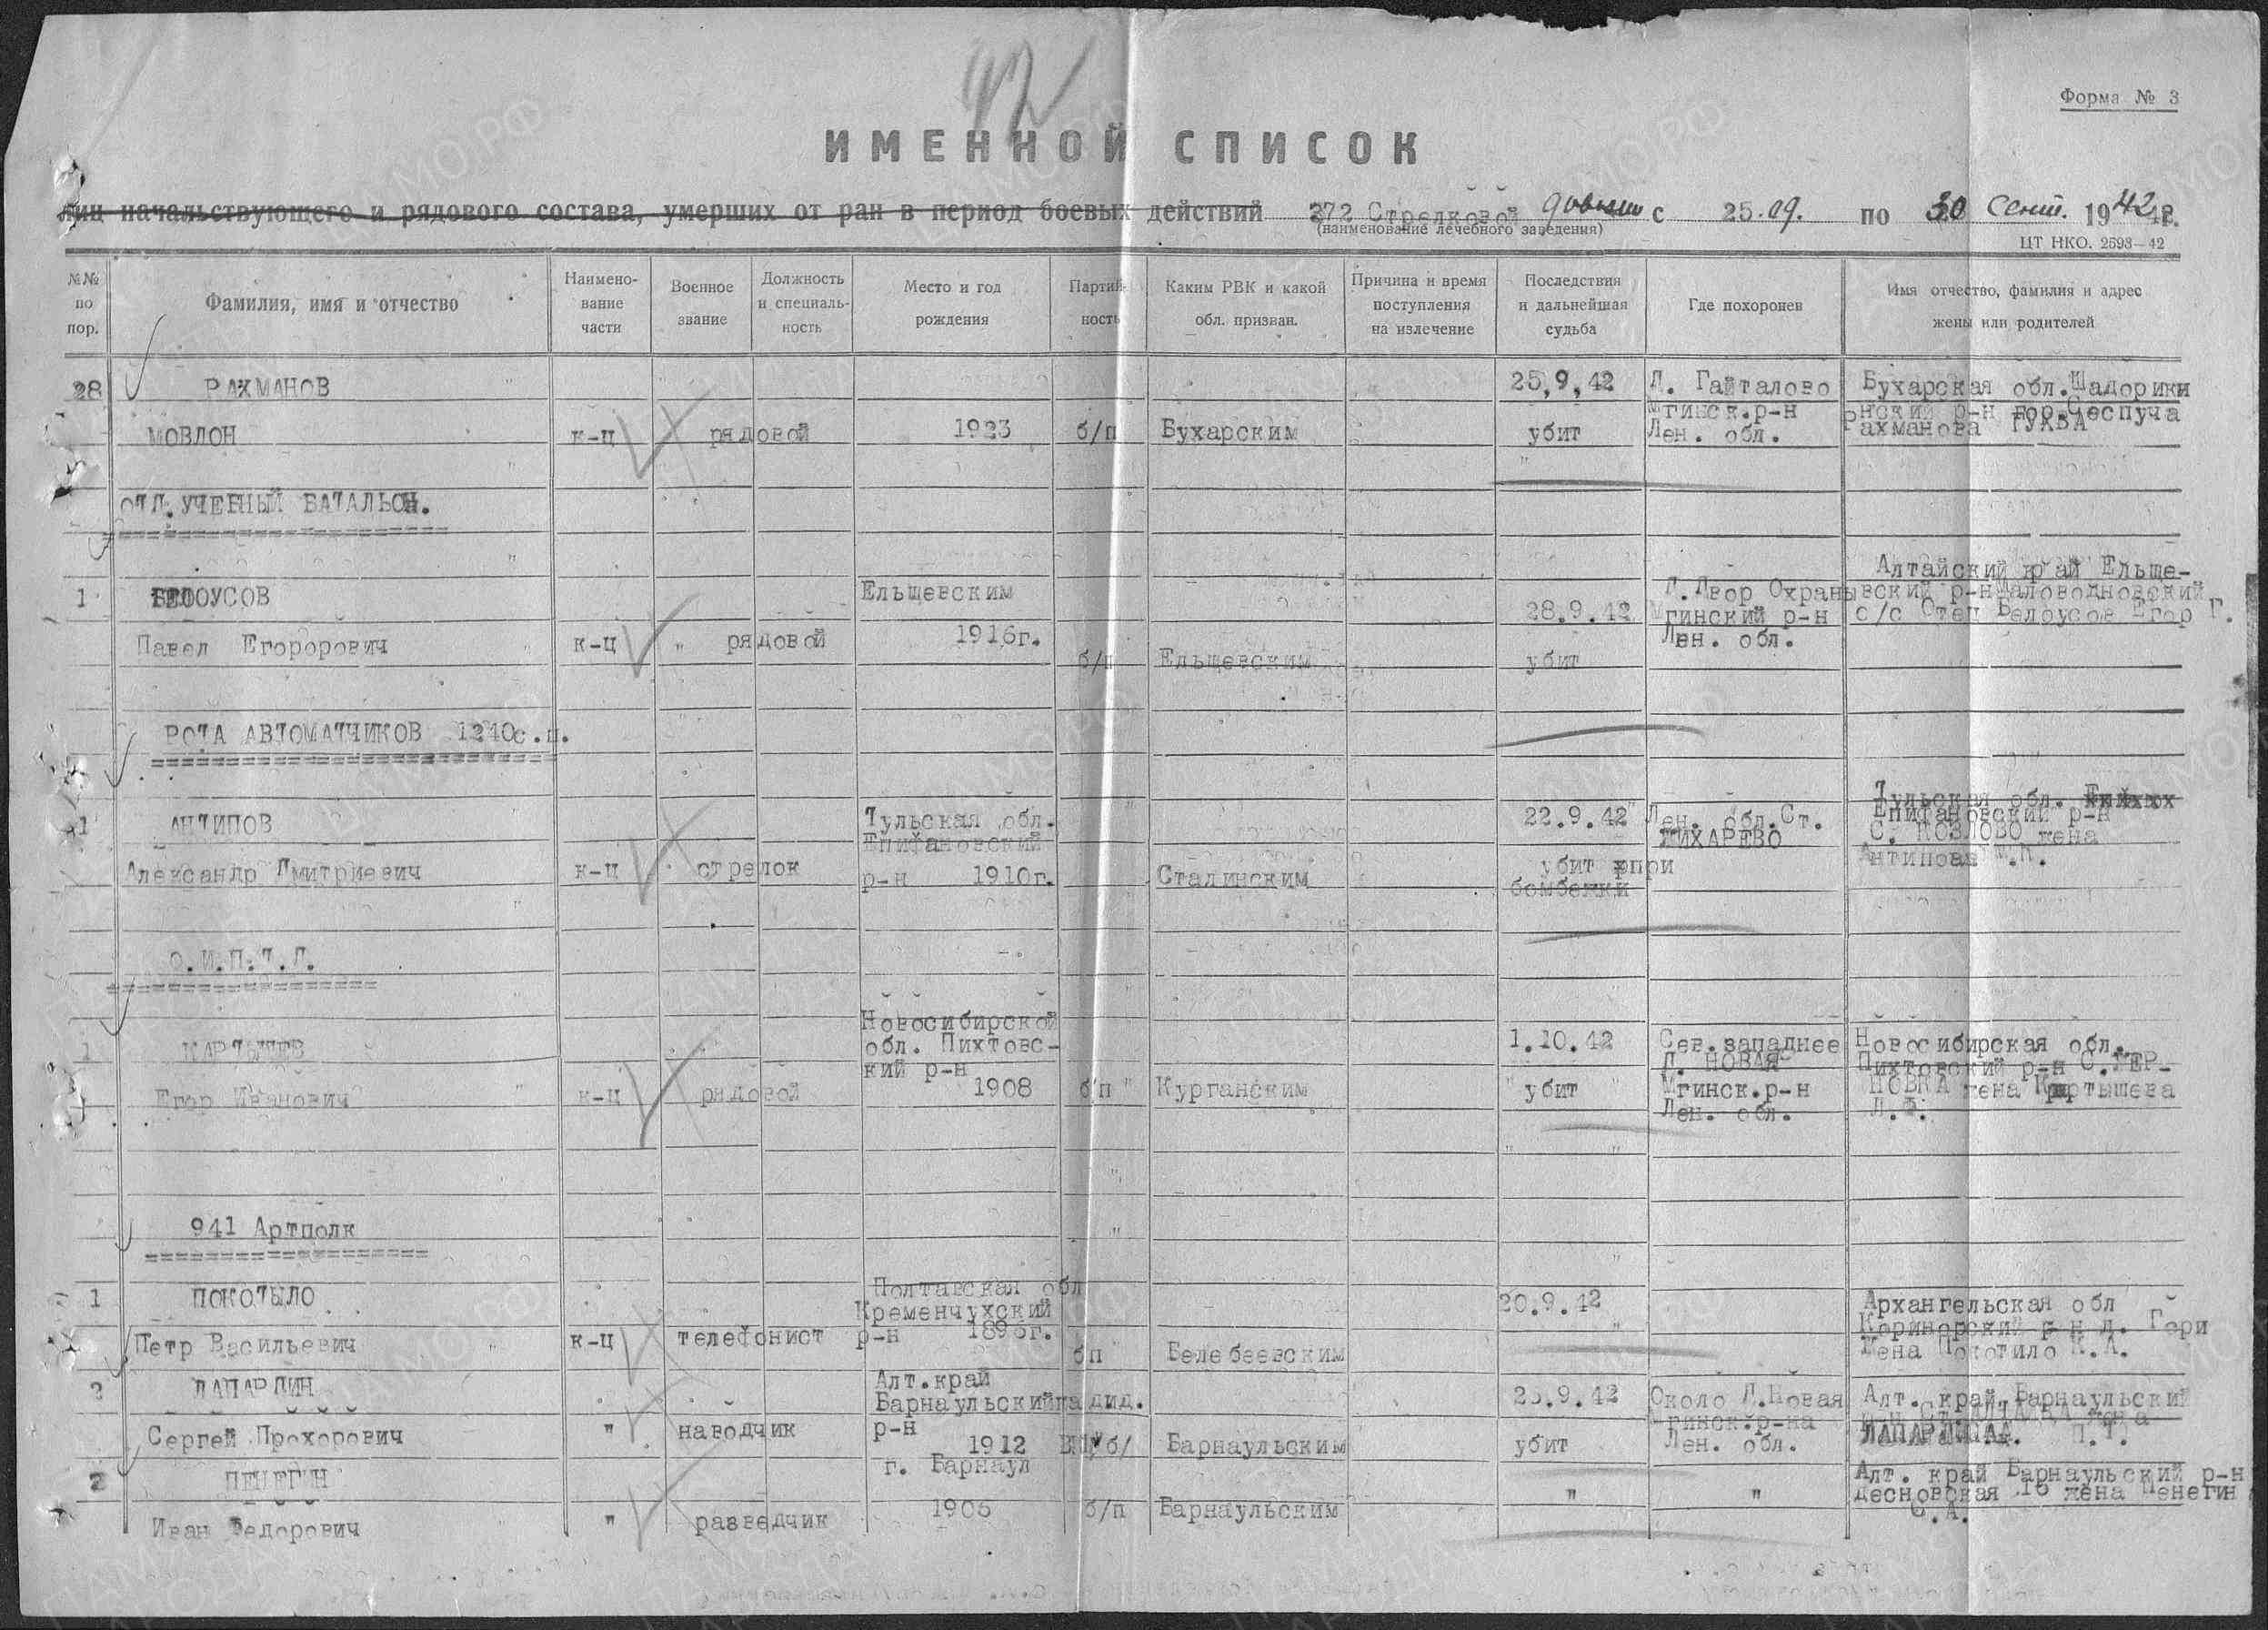 42
Форма № 3
ИМЕННОЙ СПИСОК
лиц начальствующего и рядового состава, умерших от ран в период боевых действий 372 Стрелковой с 25.09. по 30 Сент. 1942 г.
(наименование лечебного заведения)
ЦТ НКО. 2593—42
№№ по пор.
Фамилия, имя и отчество
Наимено-
вание
части
Военное
звание
Должность
и специаль-
ность
Место и год
рождения
Партий-
ность
Каким РВК и какой
обл. призван.
Причина и время
поступления
на излечение
Последствия
и дальнейшая
судьба
Где похоронен
Имя отчество, фамилия и адрес
жены или родителей
28 РАХМАНОВ 25,9,42 Д. Гайталово Бухарская обл.
Мгинск.р-н
МОВЛОН к-ц рядовой 1923 б/п Бухарским убит Лен. обл. Рахманова
ОТД. УЧЕБНЫЙ БАТАЛЬОН.
Алтайский край Ельце-
1 Ельцевским Д.Двор Охраны вский р-н
28.9.42 Мгинский р-н с/с Отец Белоусов Егор Г.
Павел Егорорович к-ц " рядовой 1916г. Лен. обл.
б/п Ельцевским убит
РОТА АВТОМАТЧИКОВ 1240с.п.
Тульская обл.
1 АНТИПОВ Тульская обл. 22.9.42 Лен. обл.Ст. Епифановский р-н
Епифановский ЖИХАРЕВО С. КОЗЛОВО жена
Александр Дмитриевич к-ц стрелок р-н 1910г. Сталинским убит при Антипова
бомбежки
О.И.П.Т.Д.
Новосибирской
1 КАРТЫШЕВ обл. Пихтовс- 1.10.42 Сев.западнее Новосибирская обл.
кий р-н Д. НОВАЯ Пихтовский р-н
Егор Иванович к-ц рядовой 1908 б п Курганским убит Мгинск.р-н жена Картышева
Лен. обл.
941 Артполк
1 ПОКОТЫЛО Полтавская обл 20.9.42 Архангельская обл
Кременчухский
Петр Васильевич к-ц телефонист р-н бп Белебеевским Жена Покотило К.А.
2 ЛАПАРДИН Алт.край 9.42 Около Д.Новая Алт. край Барнаульский
Барнаульский Мгинск.р-на
Сергей Прохорович " наводчик р-н 1912 Барнаульским убит Лен. обл. П.Т.
2 ПЕНЕГИН г. Барнаул Алт. край Барнаульский р-н
" " жена Пенегин
Иван Федорович " разведчик б/п Барнаульским